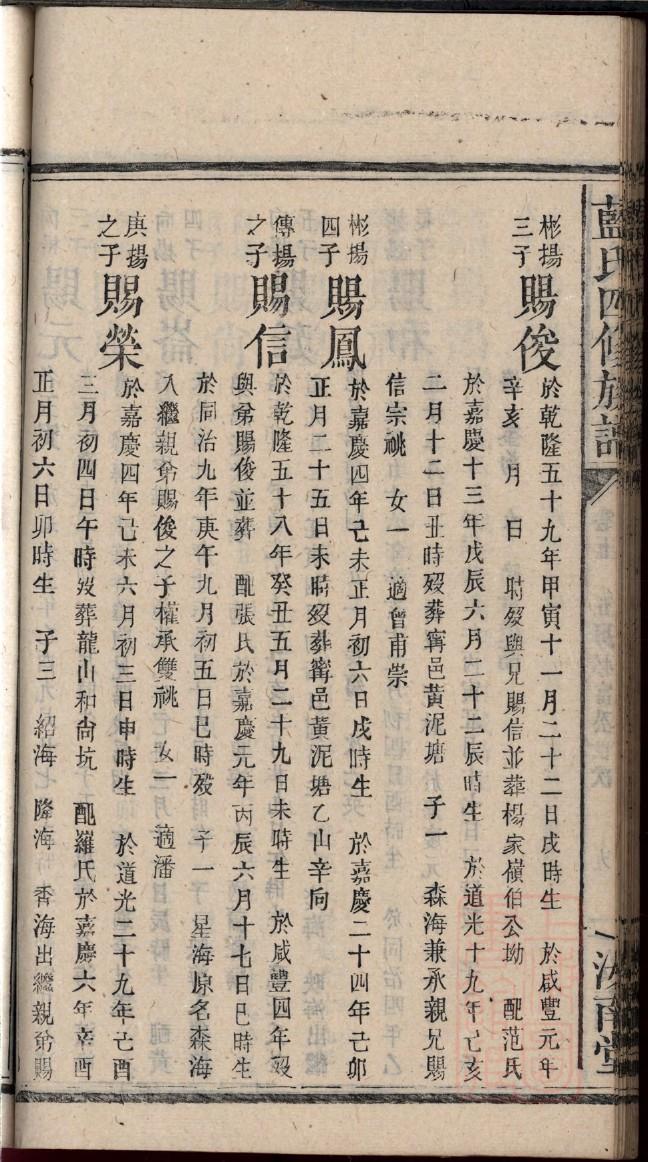 藍氏四修族譜
汝南堂
彬揚
三子
賜俊
於乾隆五十九年甲寅十一月二十二日戌時生 於咸豐元年
辛亥 月 日 時歿與兄賜信並葬楊家嶺伯公坳 配范氏
於嘉慶十三年戊辰六月二十二辰時生 於道光十九年己亥
二月十二日丑時歿葬甯邑黃泥塘 子一 森海兼承親兄賜
信宗祧 女一 適曾甫崇
彬揚
四子
賜鳳
於嘉慶四年己未正月初六日戌時生 於嘉慶二十四年己卯
正月二十五日未時歿葬甯邑黃泥塘乙山辛向
傳揚
之子
賜信
於乾隆五十八年癸丑五月二十九日未時生 於咸豐四年歿
與弟賜俊並葬 配張氏於嘉慶元年丙辰六月十七日巳時生
於同治九年庚午九月初五日巳時歿 子一 星海原名森海
入繼親弟賜俊之子權承雙祧 女一 適潘
庚揚
之子
賜榮
於嘉慶四年己未六月初三日申時生 於道光二十九年己酉
三月初四日午時歿葬龍山和尚坑 配羅氏於嘉慶六年辛酉
正月初六日卯時生 子三 紹海 隆海 香海出繼親弟賜